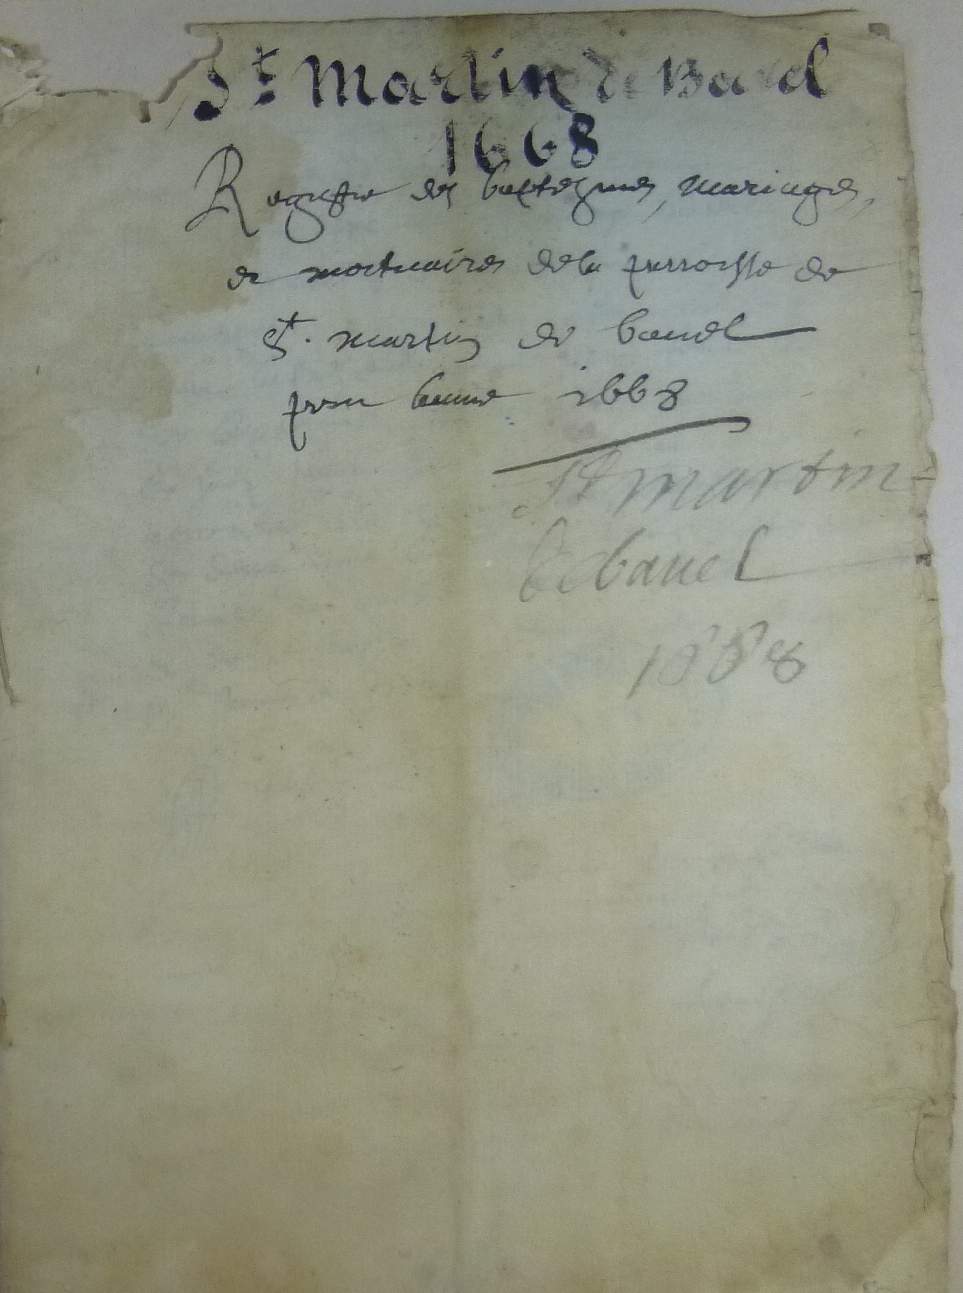 St Martin de Bavel
1668
Registre des baptesmes, mariages,
et mortuaires de la parroisse de
St. martin de bavel
pour lannee 1668
St martin
de bavel
1668